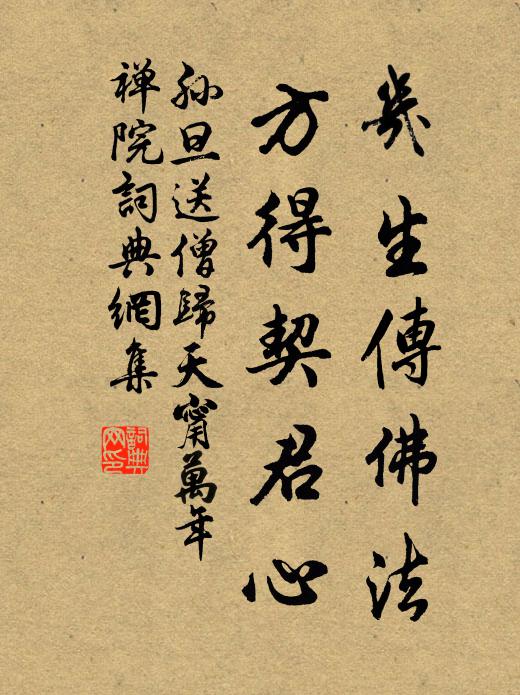 幾生傳佛法
方得契君心
孫旦送僧歸天甯萬年
禅院詞典網集
詞典網印